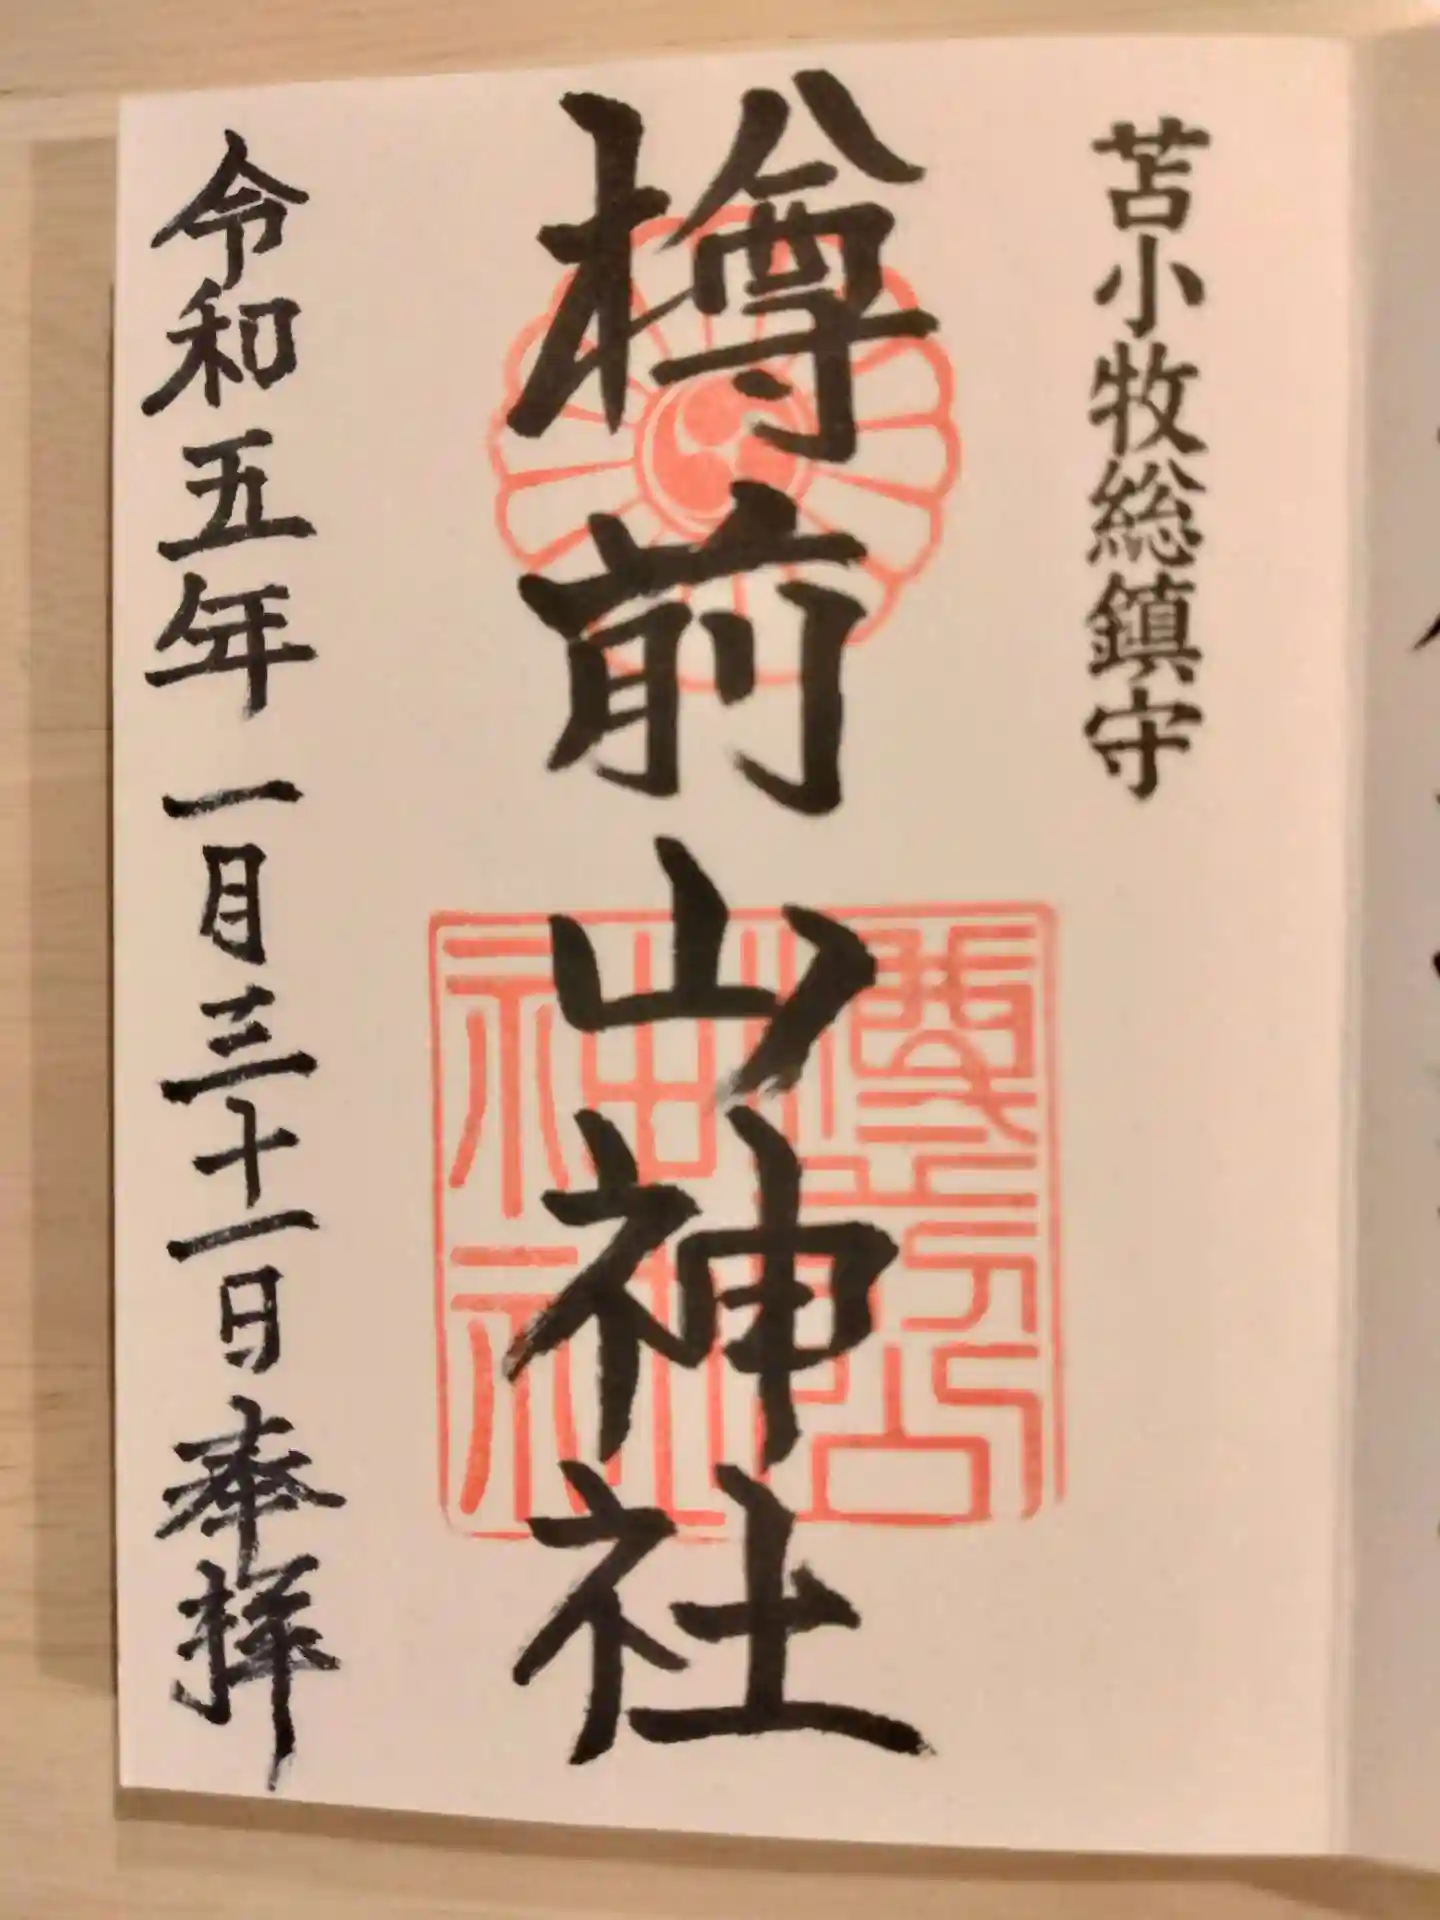 苫小牧総鎮守
樽前山神社
令和五年一月三十一日奉拝